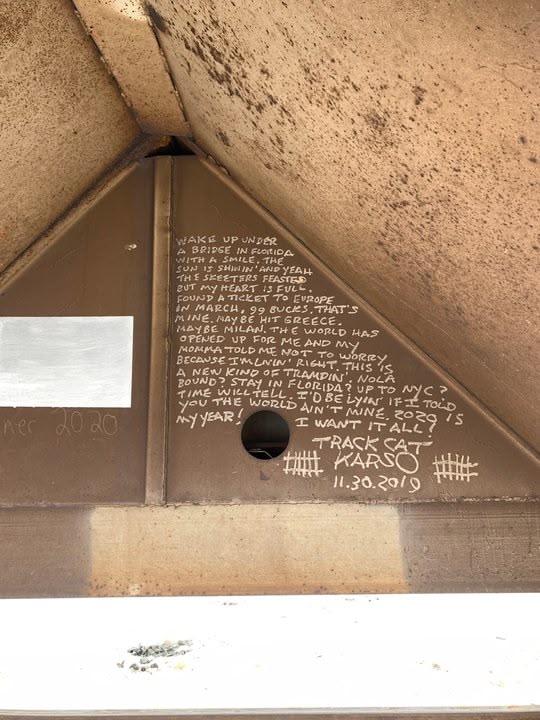 WAKE UP UNDER
A BRIDGE IN FLORIDA
WITH A SMILE. THE
SUN IS SHININ' AND YEAH
THE SKEETERS FEASTED
BUT MY HEART IS FULL.
FOUND A TICKET TO EUROPE
IN MARCH, 99 BUCKS. THAT'S
MINE. MAYBE HIT GREECE.
MAYBE MILAN. THE WORLD HAS
OPENED UP FOR ME AND MY
MOMMA TOLD ME NOT TO WORRY
BECAUSE I'M LIVIN' RIGHT. THIS IS
A NEW KIND OF TRAMPIN'. NOLA
BOUND? STAY IN FLORIDA? UP TO NYC?
TIME WILL TELL. I'D BE LYIN' IF I TOLD
YOU THE WORLD AIN'T MINE. 2020 IS
MY YEAR! I WANT IT ALL?
TRACK CAT
KARSO
11.30.2019
2020